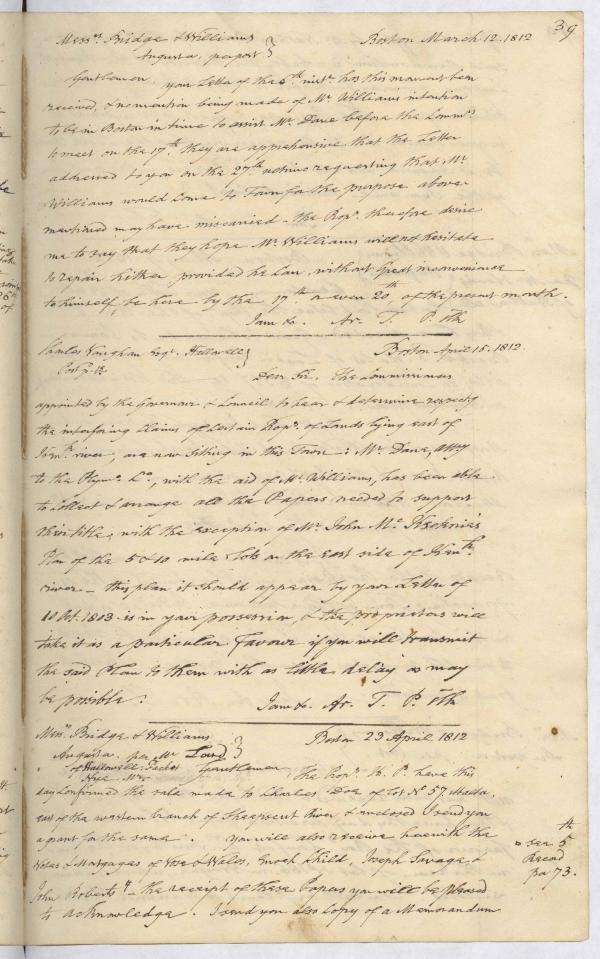 39
Mess.rs Bridge & Williams
Augusta, pr post } Boston March 12. 1812
Gentlemen, your Letter of the 8th inst.t has this moment been
received, & no mention being made of Mr Williams intention
to be in Boston in time to assist Mr. Dane before the Comm.rs
to meet on the 17th, they are apprehensive that the Letter
addressed to you on the 27th requesting that Mr.
Williams would Come to Town for the purpose above
mentioned may have miscarried – the Prop.rs therefore desire
me to say that they hope Mr. Williams will not hesitate
to repair hither, provided he Can, without Great inconvenience
to himself, be here by the 17th or even 20th of the present month.
I am &c. Ar. T. P. 8th
Charles Vaughan Esqr. Hallowell } Boston April 15. 1812
Post pd.
Dear Sir. The Commissioners
appointed by the Governour & Council to hear & determine respectg
the interfering Claims of Certain Prop.rs of Lands lying east of
Kenn.k river, are now sitting in this Town: Mr. Dane, Atty
to the Plym.o Co., with the aid of Mr. Williams, has been able
to Collect & arrange all the Papers needed to support
their title, with the exception of Mr. John Mc Kecknie's
Plan of the 5 & 10 mile Lots on the East side of Kenn.k
river – this plan it should appear by your Letter of
10 Oct. 1803 is in your possession, & the proprietors will
take it as a particular favour if you will transmit
the said Plan to them with as little delay as may
be possible. I am &c. Ar. T. P. 8th
Mess.rs Bridge & Williams
Augusta. per Mr Lord } Boston 23 April 1812
of Hallowell
Gentlemen, The Prop.rs K. P. have this
day Confirmed the sale made to Charles Doe of Lot No 57. Malta,
east of the western branch of Sheepscut River & inclosed I send you
a grant for the same. You will also receive herewith the
Notes & Mortgages of Vose & Wales, Enoch Child, Joseph Savage, &
John Roberts – the receipt of these Papers you will be pleased
to acknowledge. I send you also Copy of a Memorandum
see 5th
Record
pa 73.